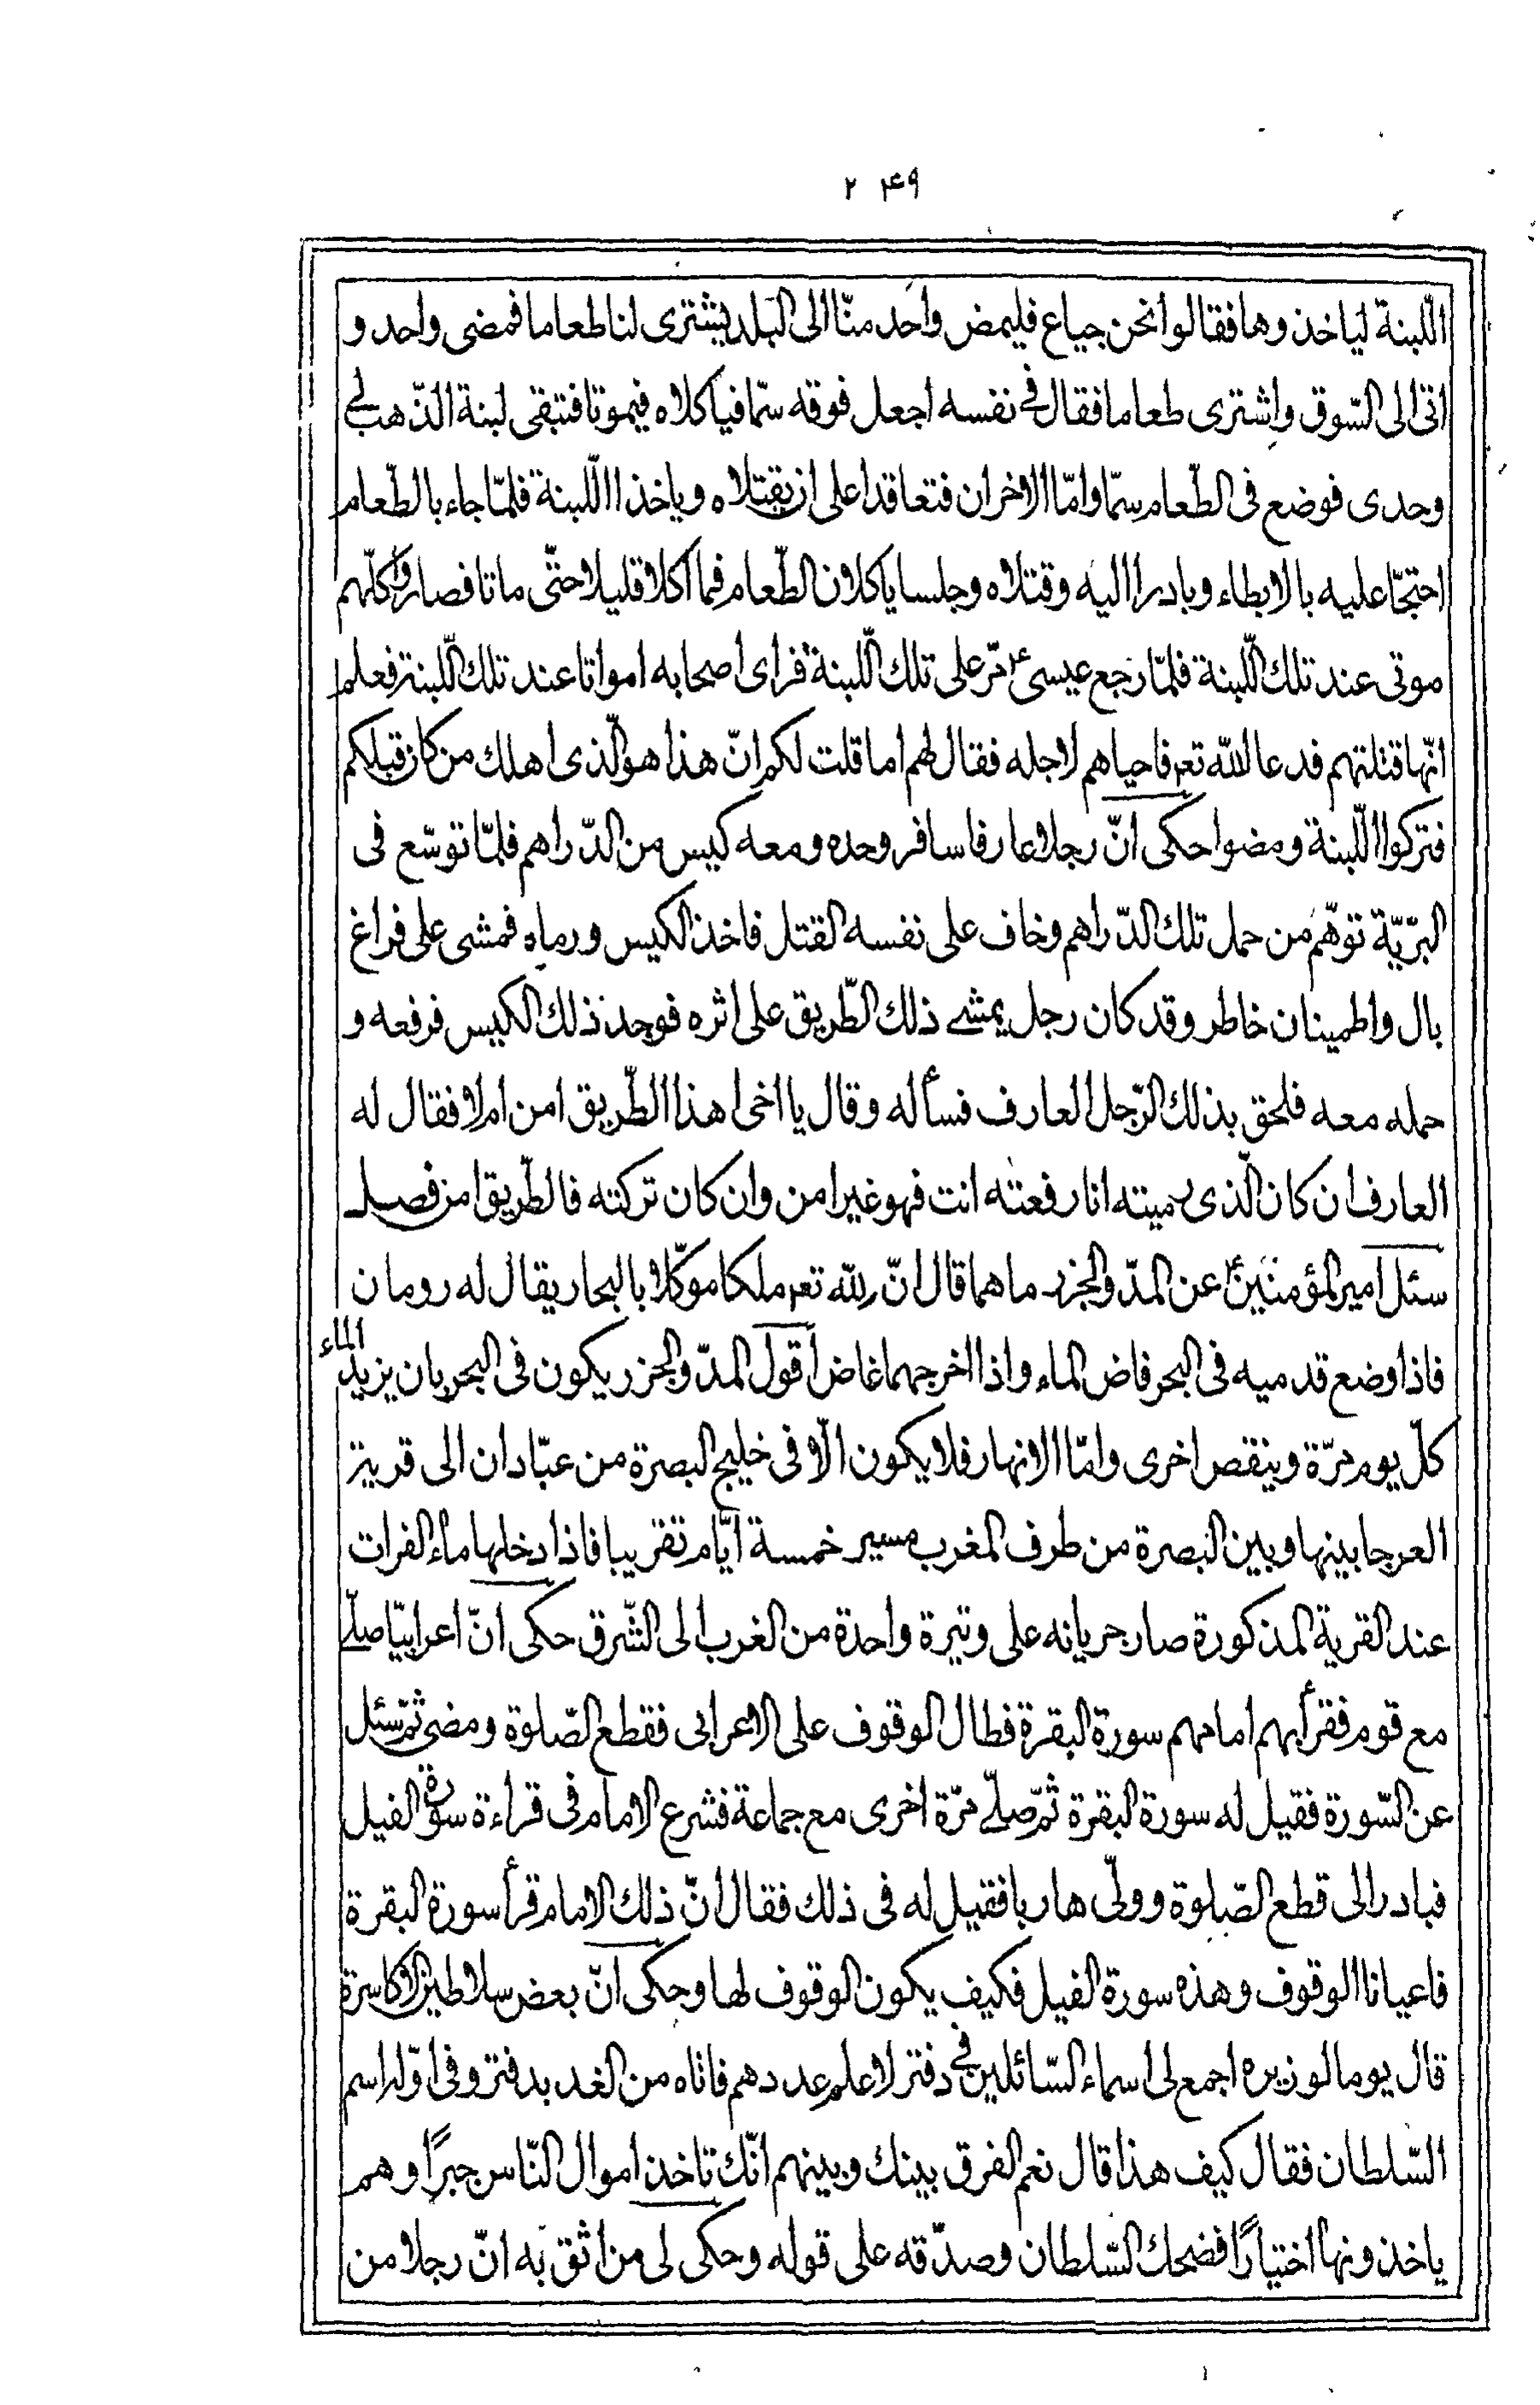 ٢ ۴٩
اللّبنة لياخذوها فقالوا نحن جياع فليمض واحد منّا الى البلد يشترى لنا طعاما فمضى واحد و
اتى الى السّوق واشترى طعاما فقال فى نفسه اجعل فوقه سمّا فياكلاه فيموتا فتبقى لبنة الذّهب لى
وحدى فوضع فى الطّعام سمّا وامّا الاخران فتعاقدا على ان يقتلاه وياخذا اللّبنة فلمّا جاء بالطّعام
احتجّا عليه بالابطاء وبادرا اليه وقتلاه وجلسا ياكلان الطّعام فما اكلا قليلا حتّى ماتا فصاروا كلّهم
موتى عند تلك اللّبنة فلمّا رجع عيسى ع مرّ على تلك اللّبنة فراى اصحابه امواتا عند تلك اللّبنة فعلم
انّها قتلتهم فدعا اللّه تعم فاحياهم لاجله فقال لهم اما قلت لكم انّ هذا هو الّذى اهلك من كان قبلكم
فتركوا اللّبنة ومضوا حكى انّ رجلا عارفا سافر وحده ومعه كيس من الدّراهم فلمّا توسّع فى
البرّيّة توهّم من حمل تلك الدّراهم وخاف على نفسه القتل فاخذ الكيس ورماه فمشى على فراغ
بال واطمينان خاطر وقد كان رجل يمشى ذلك الطّريق على اثره فوجد ذلك الكيس فرفعه و
حمله معه فلحق بذلك الرّجل العارف فسأله وقال يا اخى هذا الطّريق امن ام لا فقال له
العارف ان كان الّذى رميته انا رفعته انت فهو غير امن وان كان تركته فالطّريق امن فصل
سئل امير المؤمنين ع عن المدّ والجزر ما هما قال انّ للّه تعم ملكا موكّلا بالبحار يقال له رومان
فاذا وضع قدميه فى البحر فاض الماء واذا اخرجهما غاض أقول المدّ والجزر يكون فى البحر بان يزيد الماء
كلّ يوم مرّة وينقص اخرى وامّا الانهار فلا يكون الّا فى خليج البصرة من عبّادان الى قرية
العرجا بينها وبين البصرة من طرف المغرب مسير خمسة ايّام تقريبا فاذا دخلها ماء الفرات
عند القرية المذكورة صار جريانه على وتيرة واحدة من الغرب الى الشّرق حكى انّ اعرابيّا صلّى
مع قوم فقرأ بهم امامهم سورة البقرة فطال الوقوف على الاعرابى فقطع الصّلوة ومضى ثمّ سئل
عن السّورة فقيل له سورة البقرة ثمّ صلّى مرّة اخرى مع جماعة فشرع الامام فى قراءة سورة الفيل
فبادر الى قطع الصّلوة وولّى هاربا فقيل له فى ذلك فقال انّ ذلك الامام قرأ سورة البقرة
فاعيانا الوقوف وهذه سورة الفيل فكيف يكون الوقوف لها وحكى انّ بعض سلاطين الاكاسرة
قال يوما لوزيره اجمع لى اسماء السّائلين فى دفتر لاعلم عددهم فاتاه من الغد بدفتر وفى اوّله اسم
السّلطان فقال كيف هذا قال نعم الفرق بينك وبينهم انّك تاخذ اموال النّاس جبرًا وهم
ياخذونها اختيارًا فضحك السّلطان وصدّقه على قوله وحكى لى من اثق به انّ رجلا من